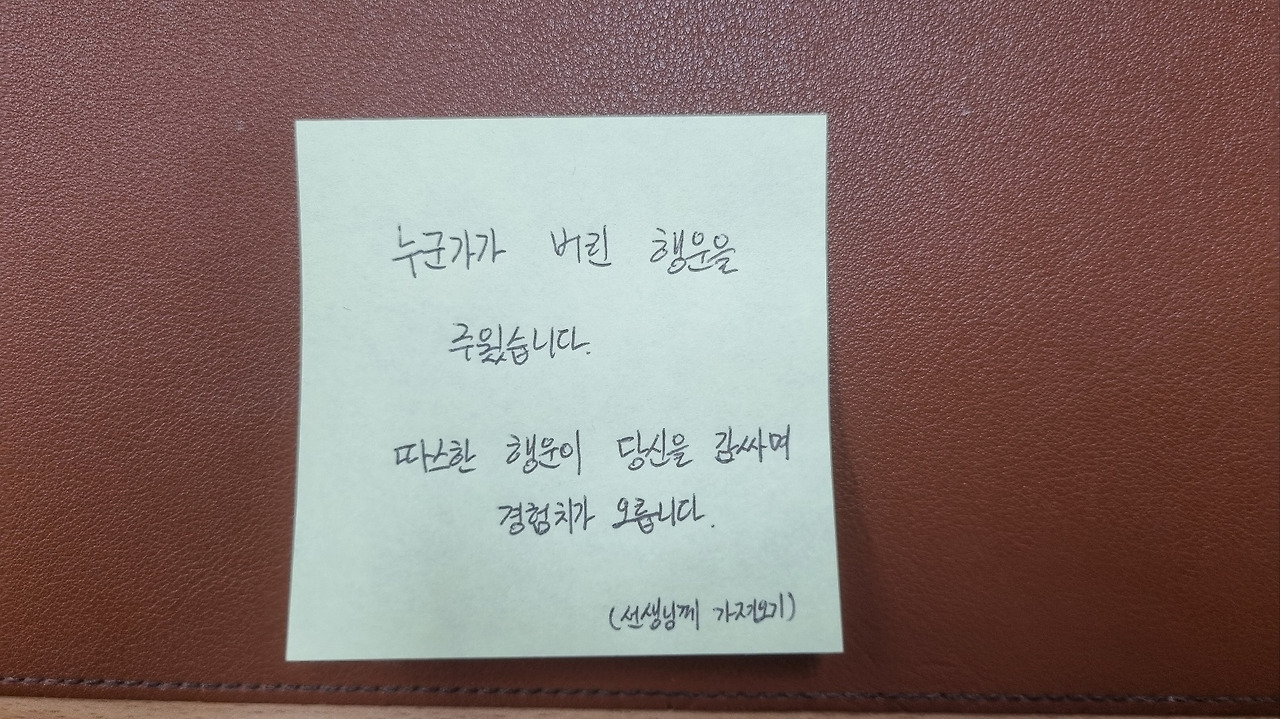 누군가가 버린 행운을
주웠습니다.
따스한 행운이 당신을 감싸며
경험치가 오릅니다.
(선생님께 가져오기)